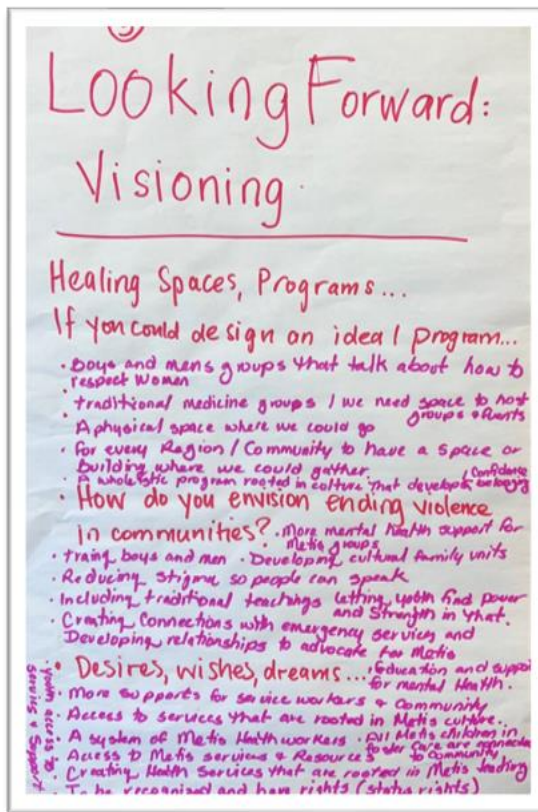 3
Looking Forward:
Visioning
Healing Spaces, Programs...
If you could design an ideal program...
• Boys and mens groups that talk about how to
respect women
• traditional medicine groups / we need space to host
groups & events
• A physical space where we could go
• for every Region / Community to have a space or
building where we could gather.
• A wholistic program rooted in culture that develops belonging
/ Confidence
• How do you envision ending violence
in communities? • More mental health support for
Metis groups
• traing boys and men • Developing cultural family units
• Reducing stigma so people can speak
• Including traditional teachings letting youth find power
and strength in that.
• Creating Connections with emergency services and
Developing relationships to advocate for Metis
• Desires, wishes, dreams... • Education and support
for mental Health.
• More supports for service workers & Community
• Access to services that are rooted in Metis culture.
• A system of Metis Health workers • All Metis children in
foster care are connected
to Community
• Access to Metis services & Resources
• Creating Health Services that are rooted in Metis
• To be recognized and have rights (status rights)
• Youth access to
services & Support